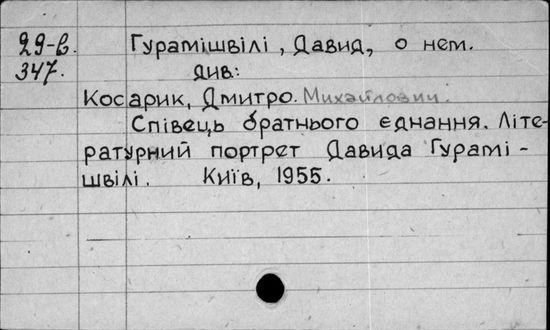 29-в. Гурамішвілі, Давид, о нем.
347. див:
Косарик, Дмитро. Михайлович.
Співець братнього єднання. Літе-
ратурний портрет Давида Гурамі-
швілі. Київ, 1955.